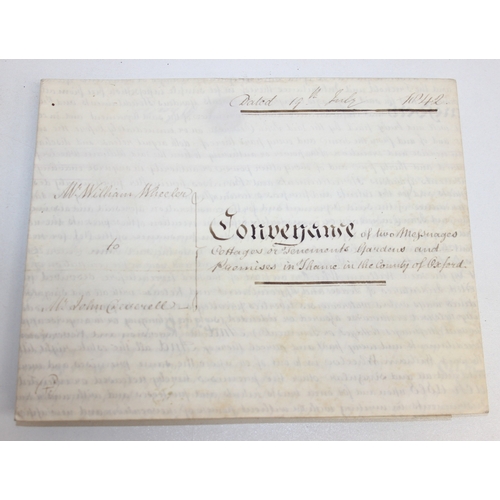 Dated 19th July 1842
Mr William Wheeler
to
Mr John
Conveyance of two Messuages
Cottages or Tenements Gardens and
Premises in Thame in the County of Oxford.